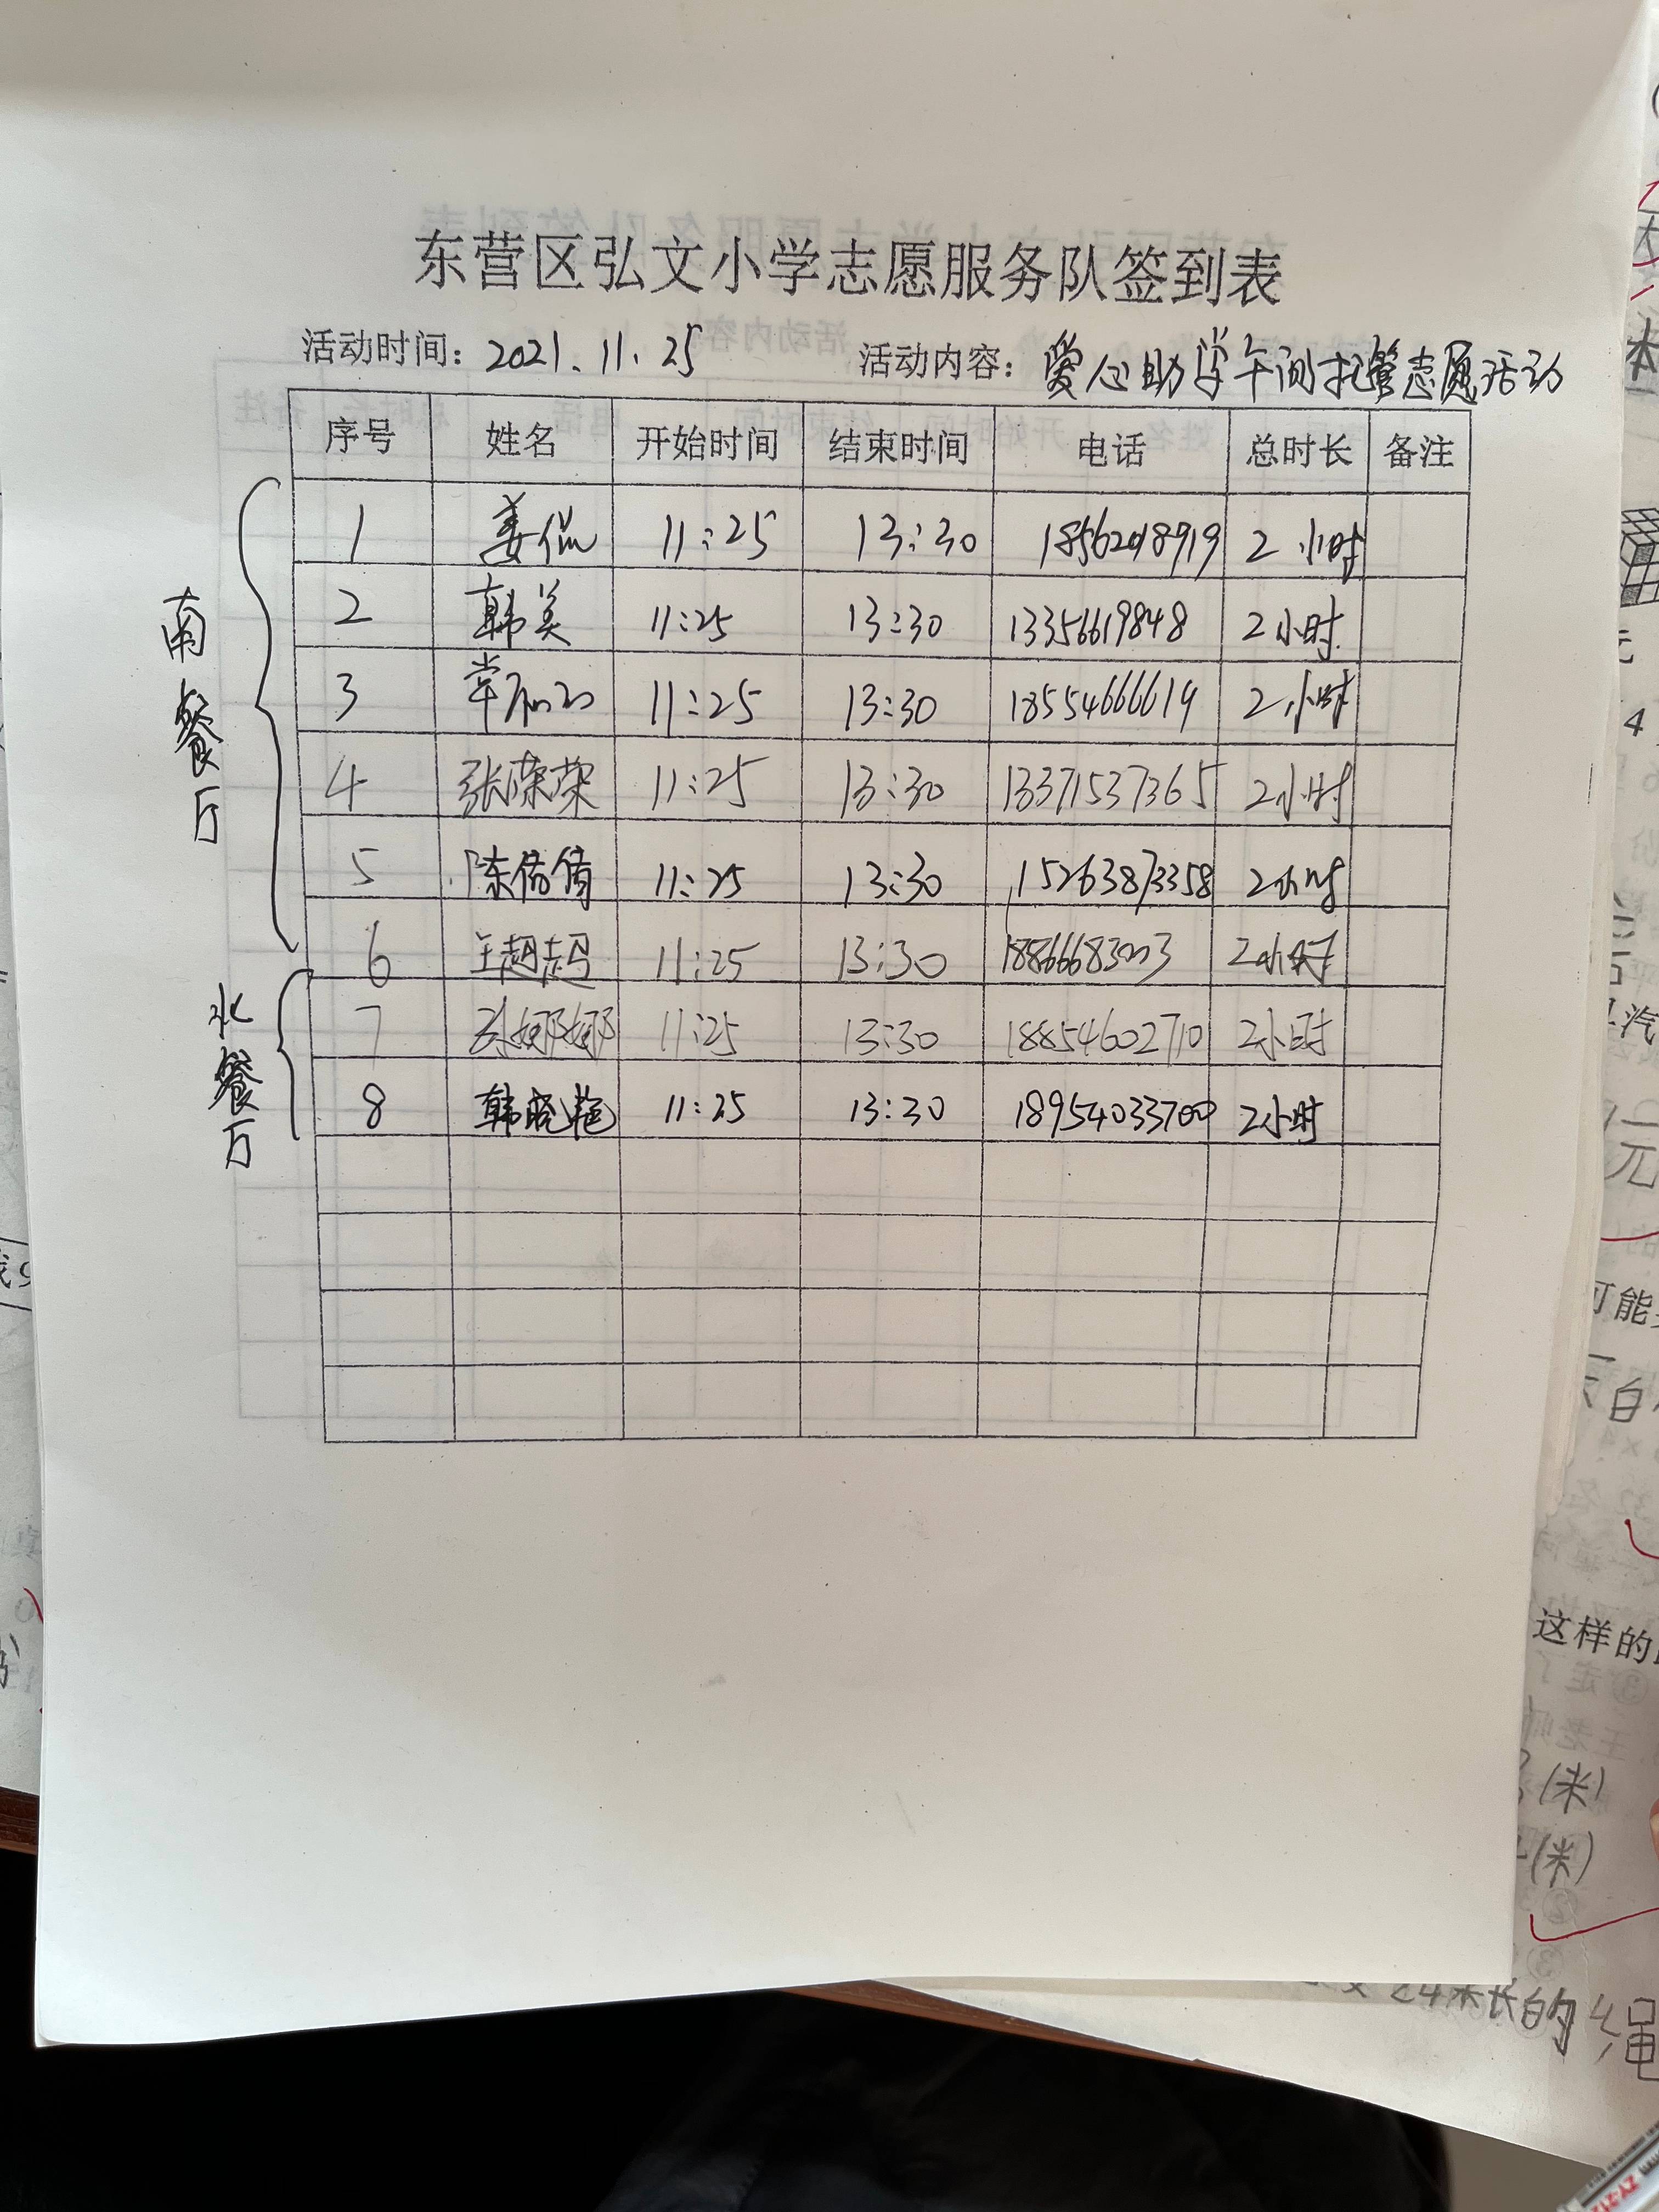 东营区弘文小学志愿服务队签到表
活动时间：2021.11.25 活动内容：爱心助学午间托管志愿活动
序号 姓名 开始时间 结束时间 电话 总时长 备注
南餐厅
1 姜侃 11:25 13:30 18562018919 2小时
2 韩美 11:25 13:30 13356619848 2小时
3 常 11:25 13:30 18554666619 2小时
4 张荣荣 11:25 13:30 13371537365 2小时
5 陈倩倩 11:25 13:30 15263873358 2小时
6 王超超 11:25 13:30 2小时
北餐厅
7 孙娜娜 11:25 13:30 18854602710 2小时
8 韩晓艳 11:25 13:30 18954033700 2小时
元
可能
这样的
(米)
(米)
24米长的绳